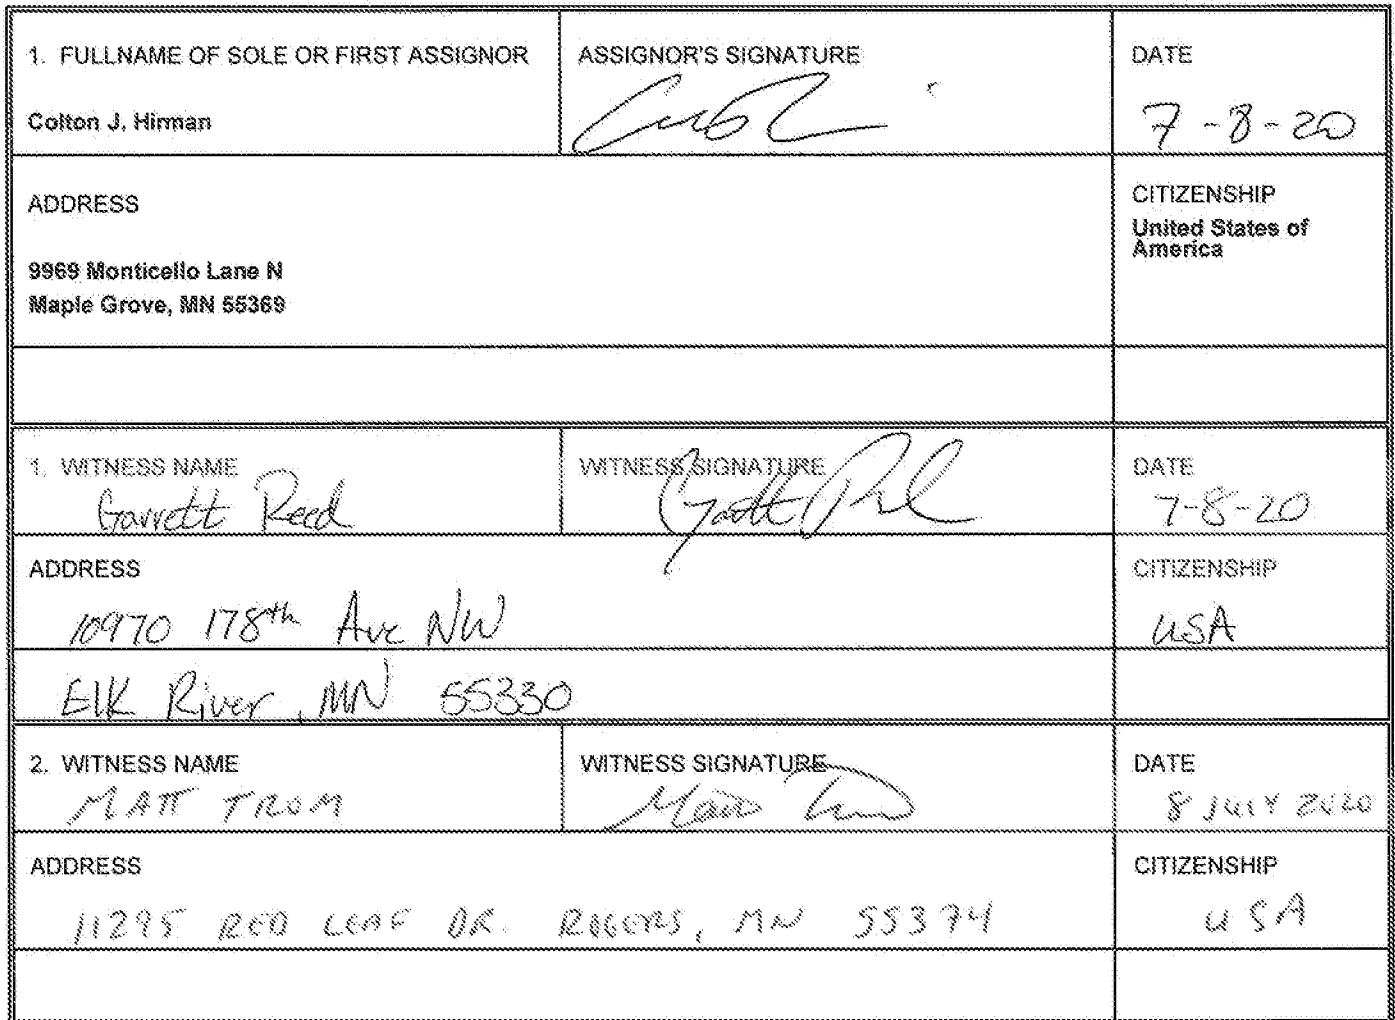 1. FULLNAME OF SOLE OR FIRST ASSIGNOR
Colton J. Hirman
ASSIGNOR'S SIGNATURE
DATE
7-8-20
ADDRESS
9969 Monticello Lane N
Maple Grove, MN 55369
CITIZENSHIP
United States of
America
1. WITNESS NAME
Garrett Reed
WITNESS SIGNATURE
DATE
7-8-20
ADDRESS
10970 178th Ave NW
Elk River, MN 55330
CITIZENSHIP
USA
2. WITNESS NAME
MATT TROM
WITNESS SIGNATURE
DATE
8 JULY 2020
ADDRESS
11295 RED LEAF DR. ROGERS, MN 55374
CITIZENSHIP
USA